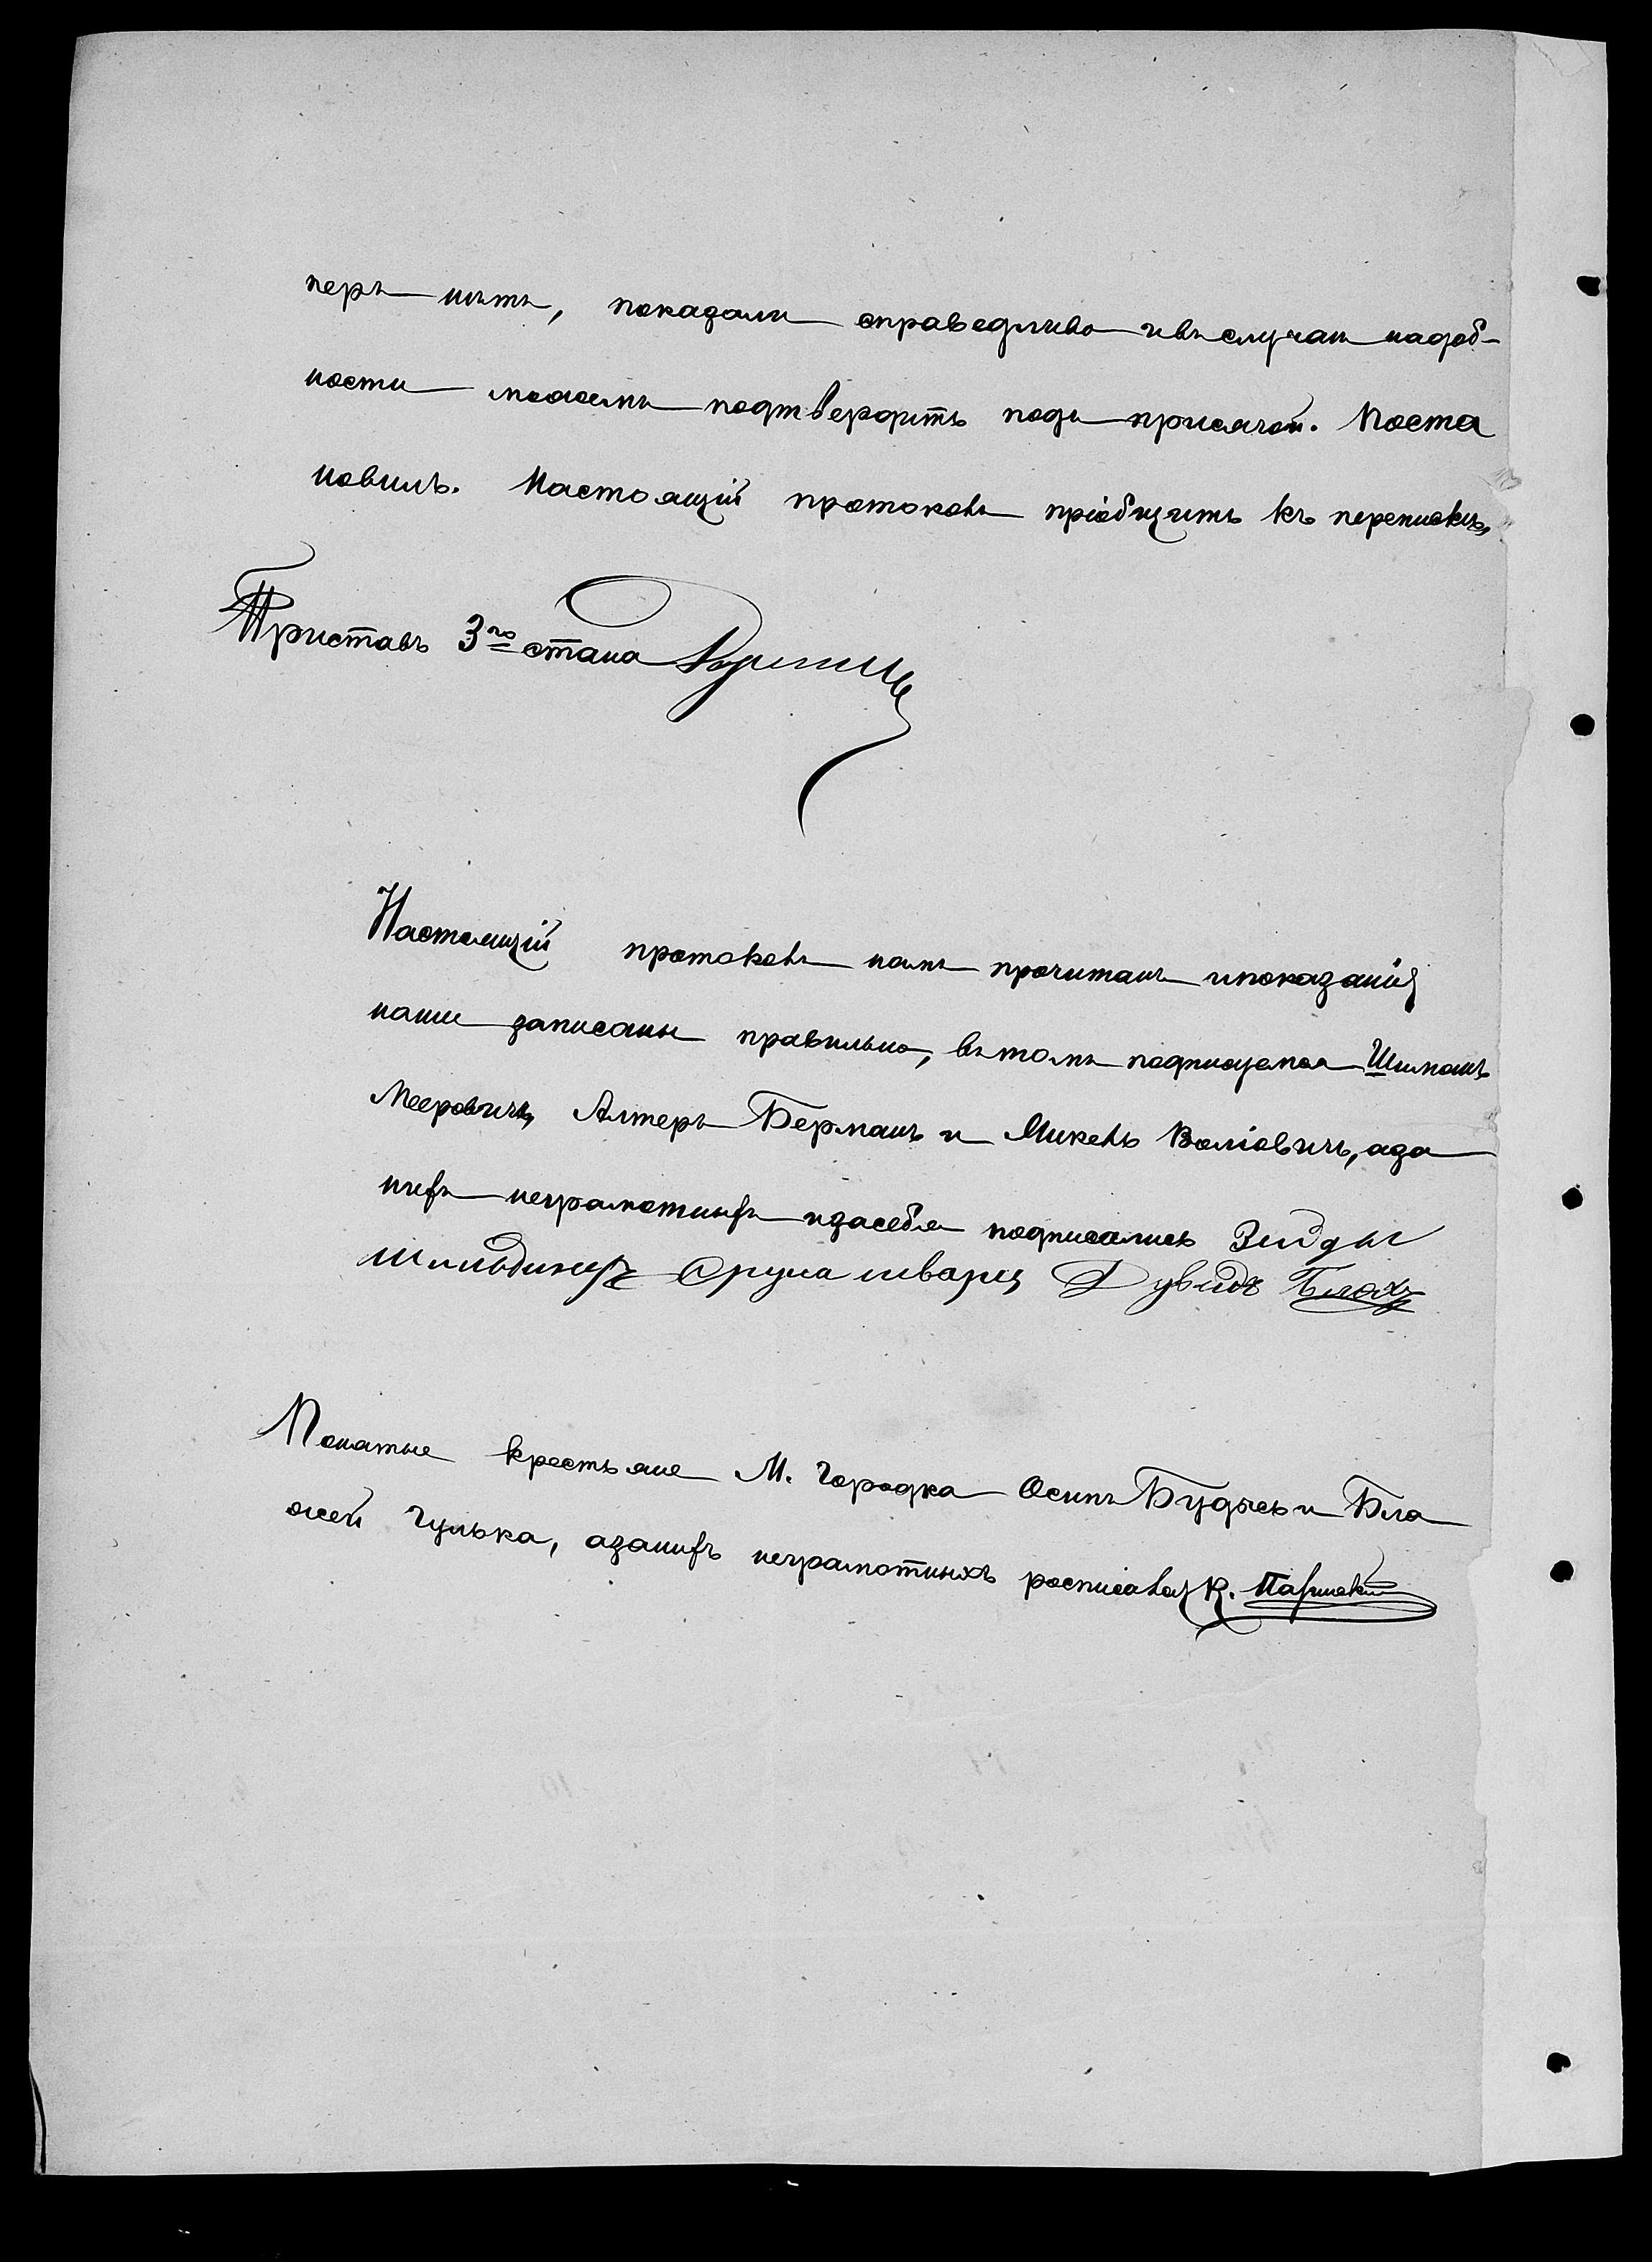 перъ нѣтъ, показали справедливо и въ случаи надоб-
ности можемъ подтвердить подъ присягой. Поста
новилъ. Настоящій протоколъ пріобщить къ перепискѣ.
Приставъ 3го стана
Настоящій протоколъ намъ прочитанъ и показанія
наши записаны правильно, въ томъ подписуемся Шиманъ
Мееровичъ, Алтеръ Берманъ и Микель Воліовичъ, а за
нихъ неграмотныхъ и за себя подписались Зейды
Шмидъ Сруна шварц Дувидъ Блохъ
Понятые крестьяне М. Городка Осипъ Будысь и Бла
жей Гулька, а за нихъ неграмотныхъ росписался К.